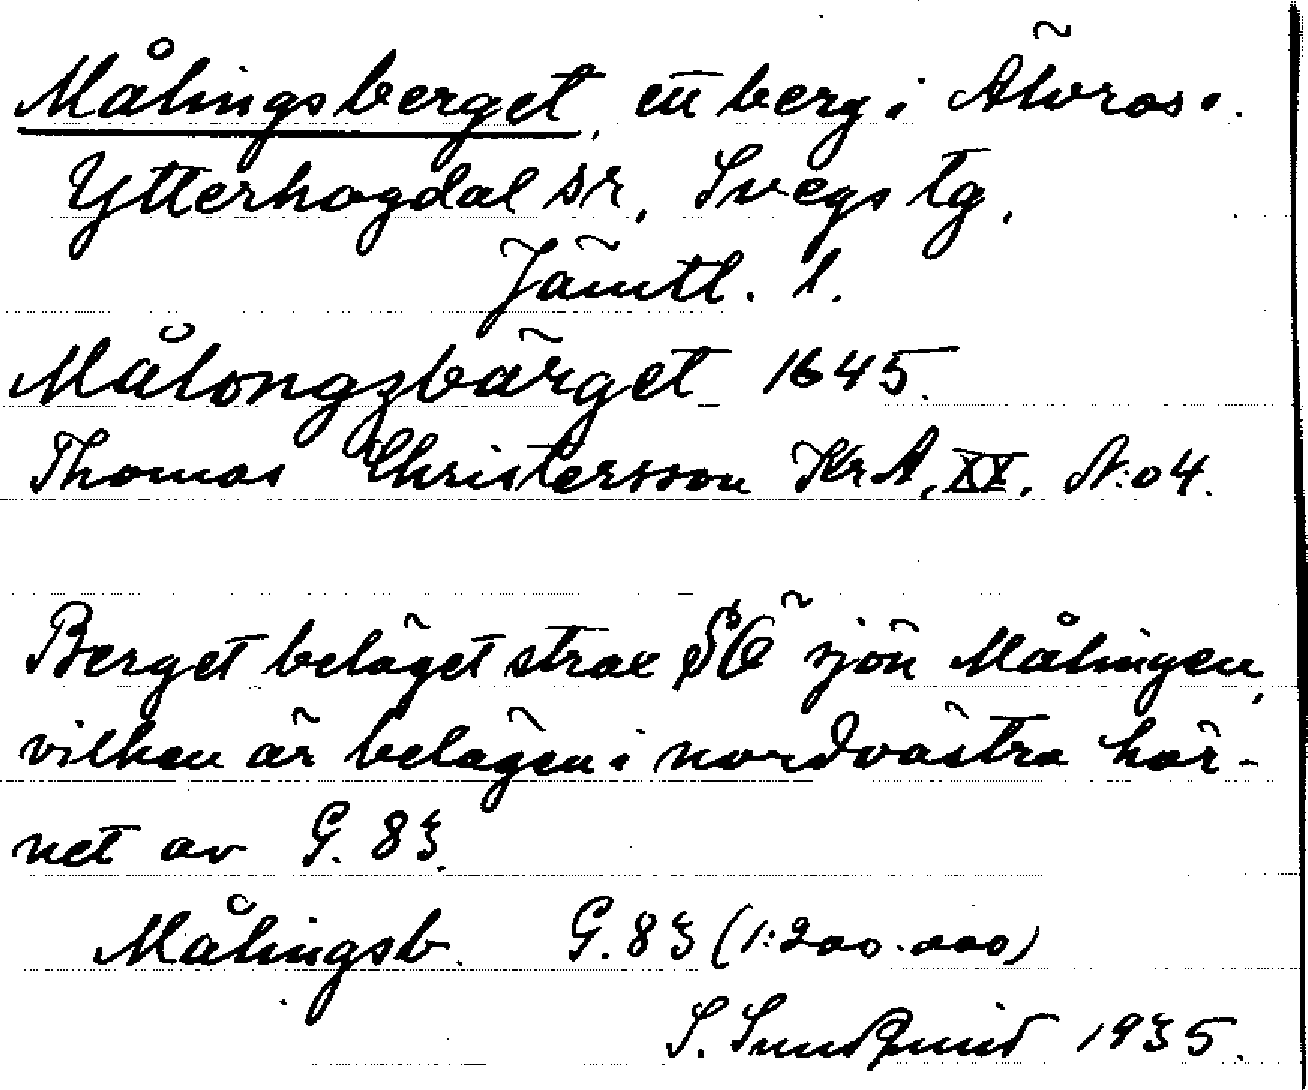 Målingsberget, ett berg i Älvros o.
Ytterhogdal sr, Svegs tg,
Jämtl. l.
Målongzbärget 1645.
Thomas Christersson KrA, XX, N:o 4.
Berget beläget strax SÖ sjön Målingen,
vilken är belägen i nordvästra hör-
net av G. 83.
Målingsb. G. 83 (1:200.000)
S. Sundqvist 1935.